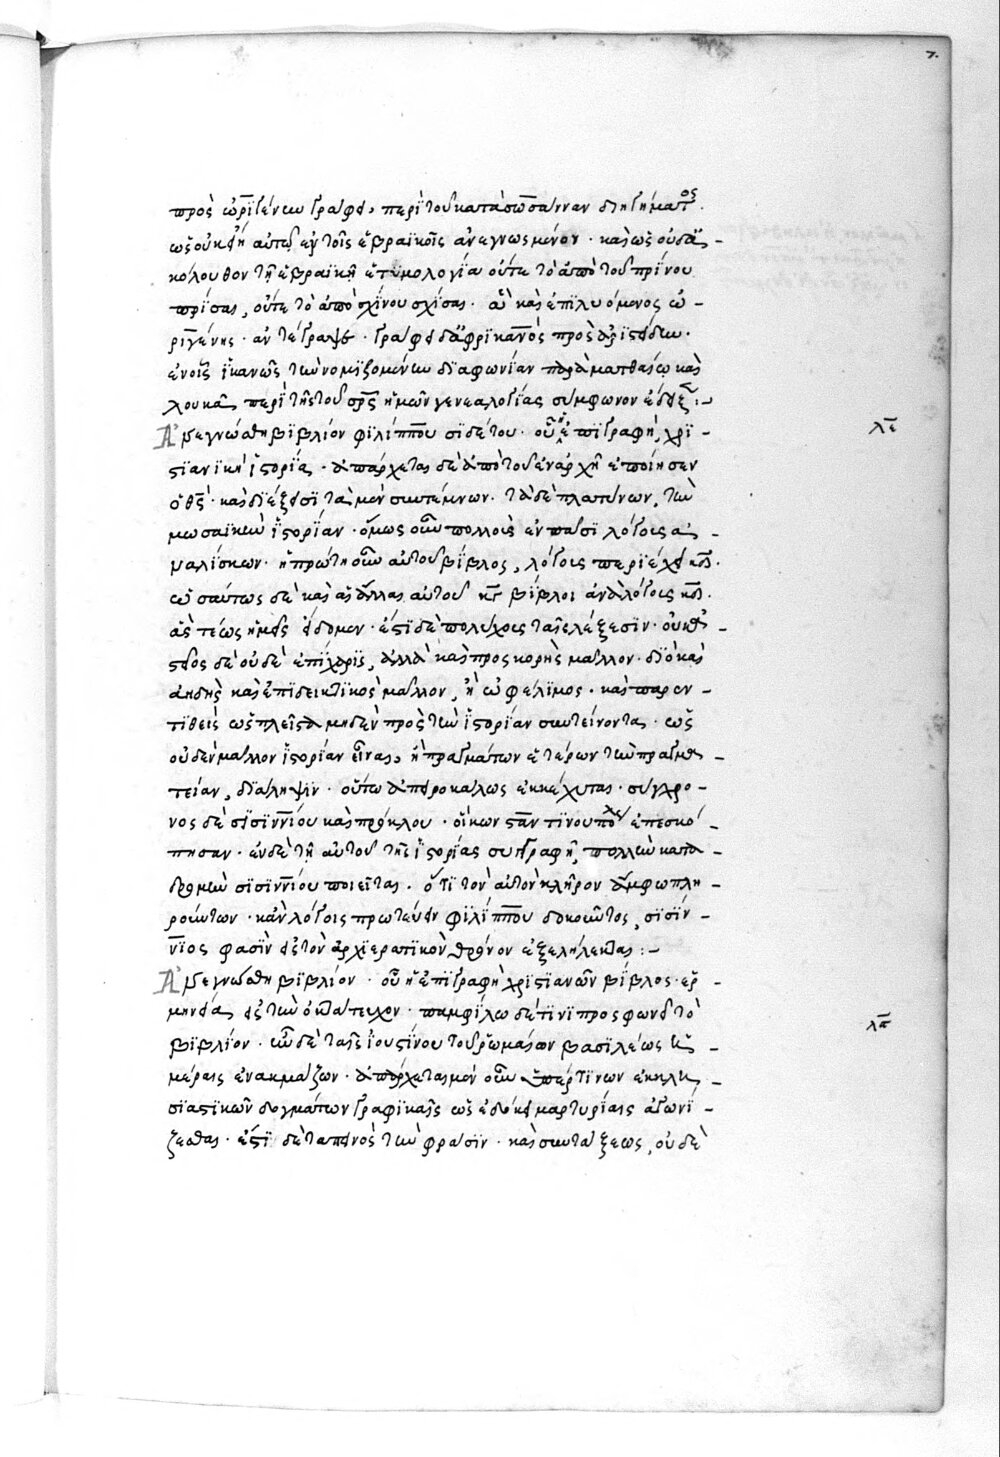 7.
πρὸς ὠριγένην γράφει περὶ τοῦ κατὰ σωσάνναν διηγήματος.
ὡς οὐκ εἴη αὐτῷ ἐν τοῖς ἑβραϊκοῖς ἀνεγνωσμένον· καὶ ὡς οὐδ' ἀ-
κόλουθον τῇ ἑβραϊκῇ ἐτυμολογία οὔτε τὸ ἀπὸ τοῦ πρίνου
πρίσαι, οὔτε τὸ ἀπὸ σχίνου σχίσαι· ἃ καὶ ἐπιλυόμενος ὠ-
ριγένης· ἀντέγραψε· γράφει δὲ ἀφρικανὸς πρὸς ἀριστείδην·
ἐν οἷς ἱκανῶς τὴν νομιζομένην διαφωνίαν παρὰ ματθαίῳ καὶ
λουκᾷ περὶ τῆς τοῦ σρς ἡμῶν γενεαλογίας σύμφωνον ἔδειξε:-
Ἀνεγνώσθη βιβλίον φιλίππου σιδέτου· οὗ ἡ ἐπιγραφή, χρι-
στιανικὴ ἱστορία· ἀπάρχεται δὲ ἀπὸ τοῦ ἐν ἀρχῆ ἐποίησεν
ὁ θς· καὶ διέξεισι τὰ μὲν συντέμνων· τὰ δὲ πλατύνων, τὴν
μωσαϊκὴν ἱστορίαν· ὅμως οὖν πολλοὺς ἐν πᾶσι λόγοις ἀ-
ναλίσκων· ἡ πρώτη οὖν αὐτοῦ βίβλος, λόγους περιέχει κδ·
ὡσαύτως δὲ καὶ αἱ ἄλλαι αὐτοῦ κγ βίβλοι ἀνὰ λόγους κδ·
ἃς τέως ἡμεῖς εἴδομεν· ἔστι δὲ πολύχους ταῖς λέξεσιν· οὐκ ἀ-
στεῖος δὲ οὐδὲ ἐπίχαρις, ἀλλὰ καὶ προσκορὴς μᾶλλον· διὸ καὶ
ἀηδὴς καὶ ἐπιδεικτικὸς μᾶλλον, ἢ ὠφέλιμος· καὶ παρεν-
τιθεὶς ὡς πλεῖστα μηδὲν πρὸς τὴν ἱστορίαν συντείνοντα· ὡς
οὐδὲν μᾶλλον ἱστορίαν εἶναι, ἢ πραγμάτων ἑτέρων τὴν πραγμα-
τείαν, διάληψιν· οὕτω ἀπειροκάλως ἐκκέχυται· σύγχρο-
νος δὲ σισιννίου καὶ πρόκλου· οἳ κωνσταντίνου πόλεως ἐπεσκό-
πησαν· ἐν δὲ τῇ αὐτοῦ τῆς ἱστορίας συγγραφῇ, πολλὴν κατα-
δρομὴν σισιννίου ποιεῖται. ὅτι τὸν αὐτὸν κλῆρον ἄμφω πλη-
ρούντων· κἀν λόγοις πρωτεύειν φιλίππου δοκοῦντος, σισίν-
νιος φασὶν εἰς τὸν ἀρχιερατικὸν θρόνον ἐξελήλεκται:-
Ἀνεγνώσθη βιβλίον· οὗ ἡ ἐπιγραφὴ χριστιανῶν βίβλος· ἑρ-
μηνεία εἰς τὴν ὀκτάτευχον· παμφίλω δέ τινι προσφωνεῖ τὸ
βιβλίον· ἦν δὲ ταῖς ἰουστίνου τοῦ ῥωμαίων βασιλέως ἡ-
μέραις ἐνακμάζων· ἀπάρχεται μὲν οὖν ὑπέρ τινων ἐκκλη-
σιαστικῶν δογμάτων γραφικαῖς ὡς ἐδόκει μαρτυρίαις ἀγωνί-
ζεσθαι· ἔστι δὲ ταπεινὸς τὴν φράσιν· καὶ συντάξεως, οὐδὲ
λε
λς